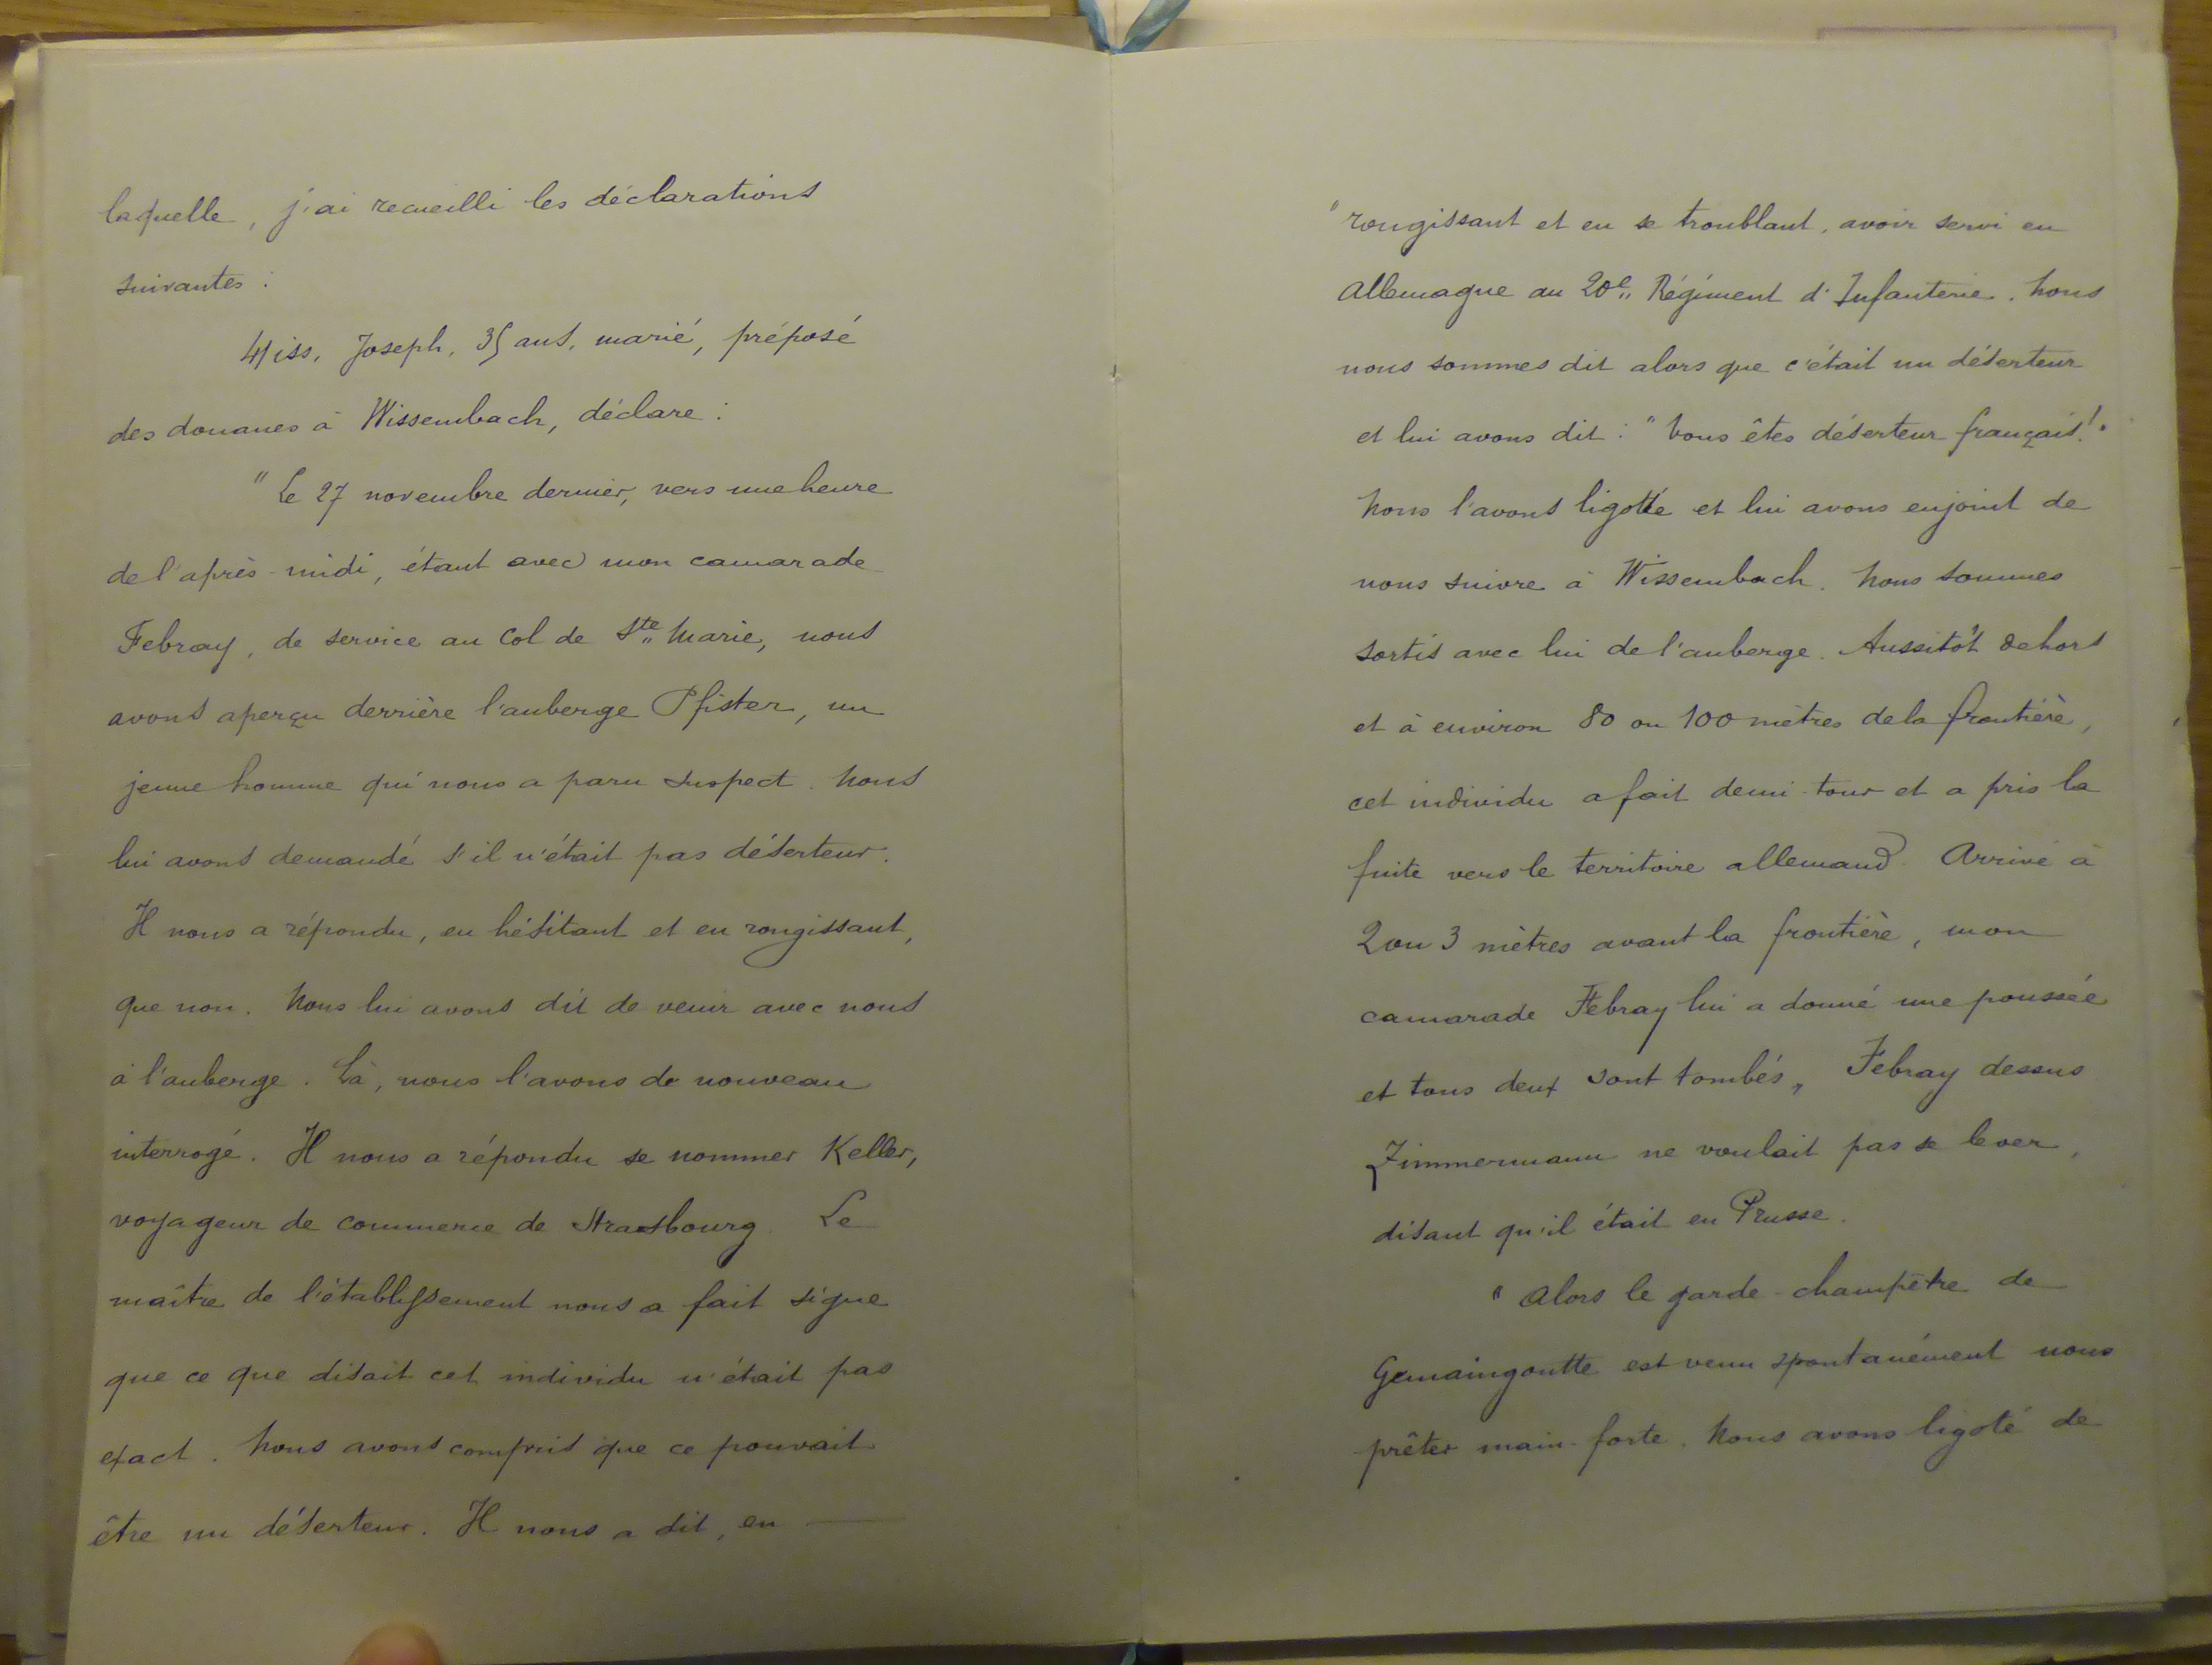 laquelle, j'ai recueilli les déclarations
suivantes :
Hiss, Joseph, 35 ans, marié, préposé
des douanes à Wissembach, déclare :
"Le 27 novembre dernier, vers une heure
de l'après-midi, étant avec mon camarade
Febray, de service au Col de Ste Marie, nous
avons aperçu derrière l'auberge Pfister, un
jeune homme qui nous a paru suspect. Nous
lui avons demandé s'il n'était pas déserteur.
Il nous a répondu, en hésitant et en rougissant,
que non. Nous lui avons dit de venir avec nous
à l'auberge. Là, nous l'avons de nouveau
interrogé. Il nous a répondu se nommer Keller,
voyageur de commerce de Strasbourg. Le
maître de l'établissement nous a fait signe
que ce que disait cet individu n'était pas
exact. Nous avons compris que ce pouvait
être un déserteur. Il nous a dit, en
"rougissant et en se troublant, avoir servi en
Allemagne au 20e Régiment d'Infanterie. Nous
nous sommes dit alors que c'était un déserteur
et lui avons dit : "Vous êtes déserteur français!"
Nous l'avons ligotté et lui avons enjoint de
nous suivre à Wissembach. Nous sommes
sortis avec lui de l'auberge. Aussitôt dehors
et à environ 80 ou 100 mètres de la frontière,
cet individu a fait demi-tour et a pris la
fuite vers le territoire allemand. Arrivé à
2 ou 3 mètres avant la frontière, mon
camarade Febray lui a donné une poussée
et tous deux sont tombés, Febray dessus
Zimmermann ne voulait pas se lever,
disant qu'il était en Prusse.
"Alors le garde-champêtre de
Gemaingoutte est venu spontanément nous
prêter main-forte. Nous avons ligoté de